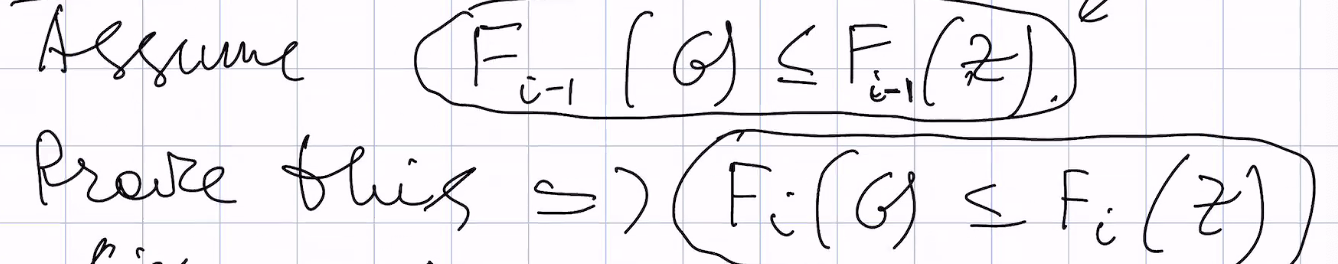 Assume F_{i-1}(G) ≤ F_{i-1}(Z).
Prove this ⇒ F_i(G) ≤ F_i(Z)